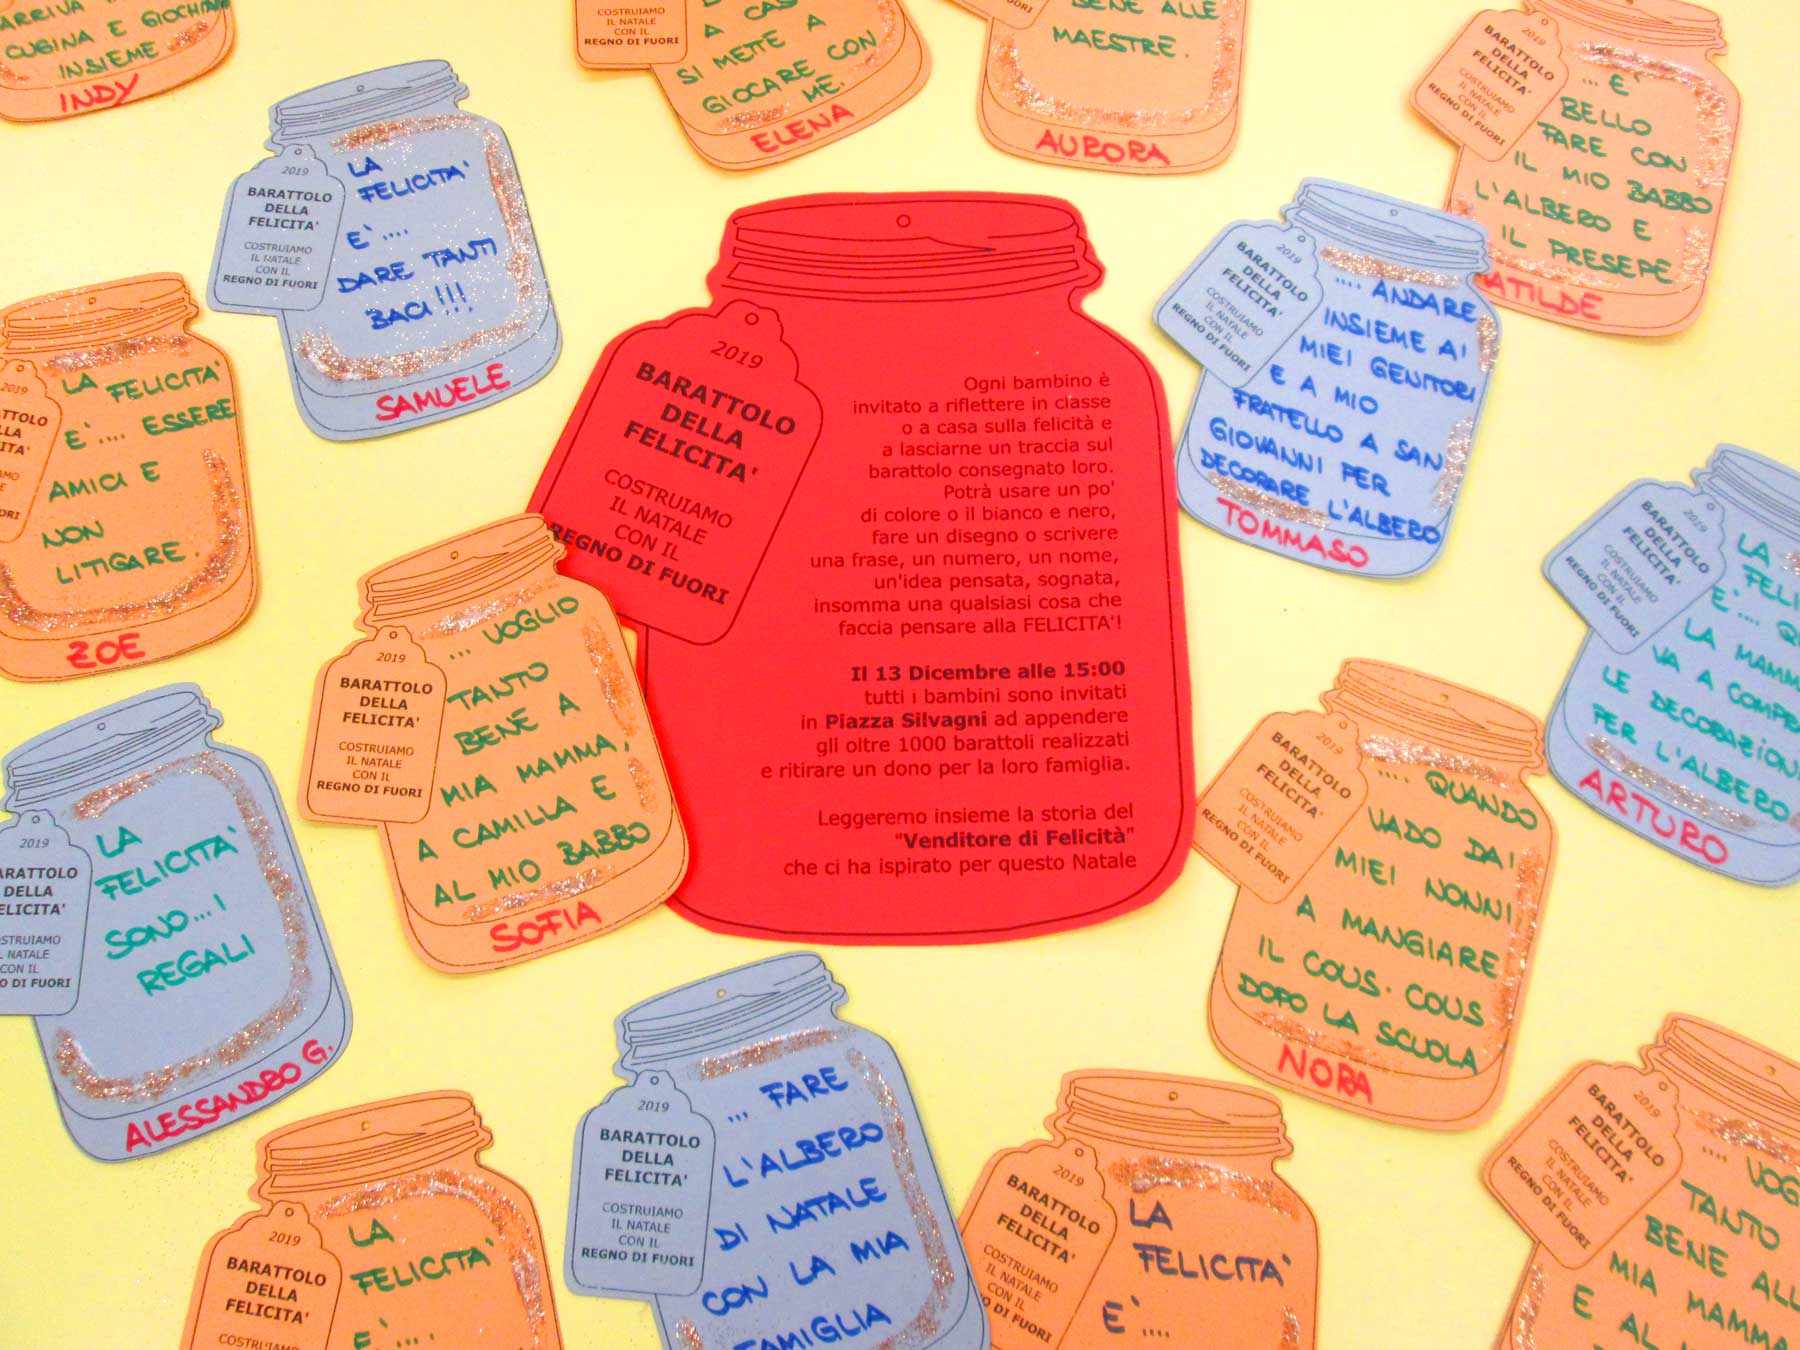 ARRIVA
CUGINA E GIOCHIAMO
INSIEME
INDY
COSTRUIAMO
IL NATALE
CON IL
REGNO DI FUORI
A CASA
SI METTE A
GIOCARE CON
ME.
ELENA
BENE ALLE
MAESTRE.
AURORA
2019
BARATTOLO
DELLA
FELICITA'
COSTRUIAMO
IL NATALE
CON IL
REGNO DI FUORI
... E'
BELLO
FARE CON
IL MIO BABBO
L'ALBERO E
IL PRESEPE
MATILDE
2019
BARATTOLO
DELLA
FELICITA'
COSTRUIAMO
IL NATALE
CON IL
REGNO DI FUORI
LA
FELICITA'
E' ....
DARE TANTI
BACI!!!
SAMUELE
2019
BARATTOLO
DELLA
FELICITA'
COSTRUIAMO
IL NATALE
CON IL
REGNO DI FUORI
Ogni bambino è
invitato a riflettere in classe
o a casa sulla felicità e
a lasciarne un traccia sul
barattolo consegnato loro.
Potrà usare un po'
di colore o il bianco e nero,
fare un disegno o scrivere
una frase, un numero, un nome,
un'idea pensata, sognata,
insomma una qualsiasi cosa che
faccia pensare alla FELICITA'!
Il 13 Dicembre alle 15:00
tutti i bambini sono invitati
in Piazza Silvagni ad appendere
gli oltre 1000 barattoli realizzati
e ritirare un dono per la loro famiglia.
Leggeremo insieme la storia del
"Venditore di Felicità"
che ci ha ispirato per questo Natale
2019
BARATTOLO
DELLA
FELICITA'
COSTRUIAMO
IL NATALE
CON IL
REGNO DI FUORI
.... ANDARE
INSIEME AI
MIEI GENITORI
E A MIO
FRATELLO A SAN
GIOVANNI PER
DECORARE L'ALBERO
TOMMASO
2019
LA FELICITA'
E' .... ESSERE
AMICI E
NON
LITIGARE.
ZOE
2019
BARATTOLO
DELLA
FELICITA'
COSTRUIAMO
IL NATALE
CON IL
REGNO DI FUORI
... VOGLIO
TANTO
BENE A
MIA MAMMA,
A CAMILLA E
AL MIO BABBO
SOFIA
2019
BARATTOLO
DELLA
FELICITA'
COSTRUIAMO
IL NATALE
CON IL
REGNO DI FUORI
LA
E' ....
LA MAMMA
VA A
LE DECORAZIONI
PER L'ALBERO
ARTURO
2019
BARATTOLO
DELLA
FELICITA'
COSTRUIAMO
IL NATALE
CON IL
REGNO DI FUORI
LA
FELICITA'
SONO... I
REGALI
ALESSANDRO G.
2019
BARATTOLO
DELLA
FELICITA'
COSTRUIAMO
IL NATALE
CON IL
REGNO DI FUORI
.... QUANDO
VADO DAI
MIEI NONNI
A MANGIARE
IL COUS-COUS
DOPO LA SCUOLA
NORA
2019
BARATTOLO
DELLA
FELICITA'
COSTRUIAMO
LA
FELICITA'
E' ....
2019
BARATTOLO
DELLA
FELICITA'
COSTRUIAMO
IL NATALE
CON IL
REGNO DI FUORI
... FARE
L'ALBERO
DI NATALE
CON LA MIA
FAMIGLIA
2019
BARATTOLO
DELLA
FELICITA'
COSTRUIAMO
IL NATALE
CON IL
DI FUORI
LA
FELICITA'
E' ....
2019
BARATTOLO
DELLA
FELICITA'
COSTRUIAMO
IL NATALE
CON IL
REGNO DI FUORI
....
TANTO
BENE
MIA MAMMA
E AL